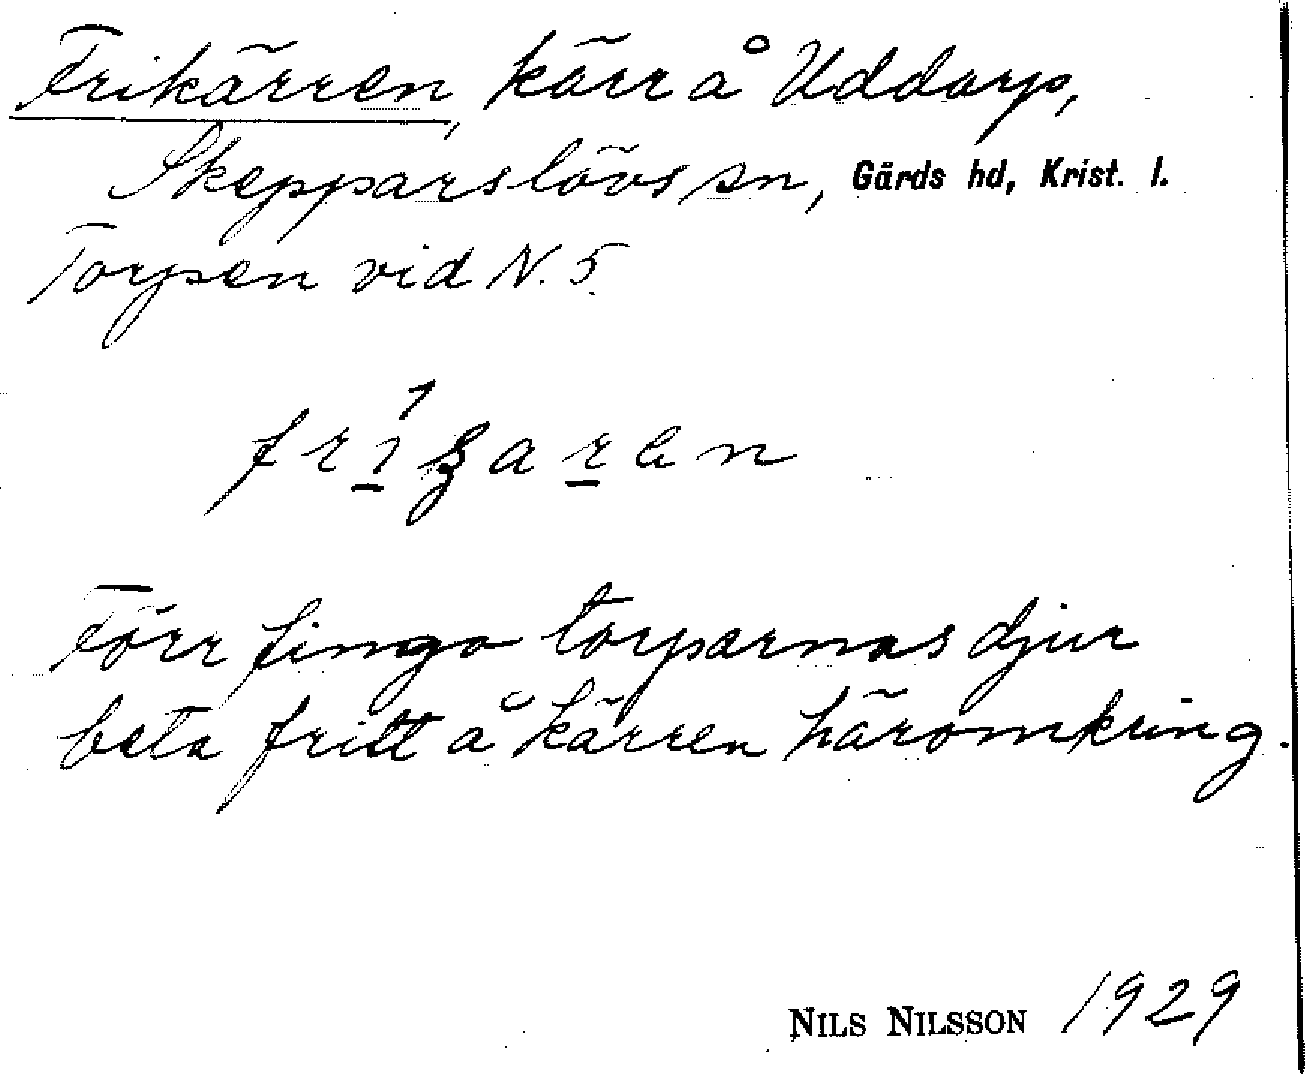 Frikärren, kärr å Uddarp,
Skepparslövs sn, Gärds hd, Krist. l.
Torpen vid N. 5.
Förr fingo torparnas djur
beta fritt å kärren häromkring.
NILS NILSSON 1929